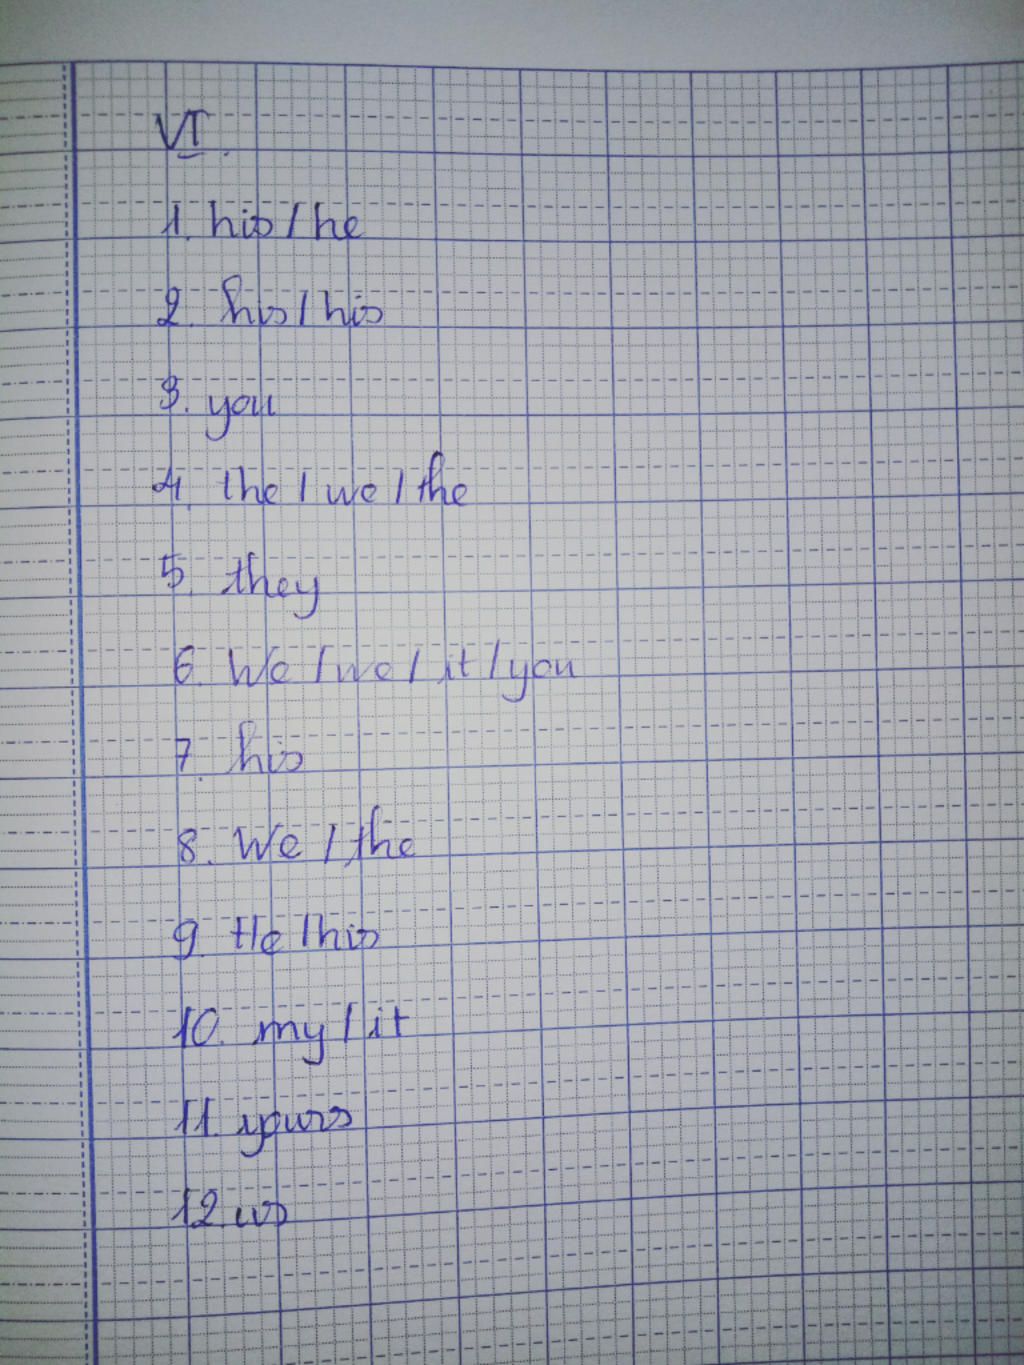 VI.
1. his / he
2. his / his
3. you
4. the / we / the
5. they
6. We / we / it / you
7. his
8. We / the
9. He / his
10. my / it
11. yours
12. us